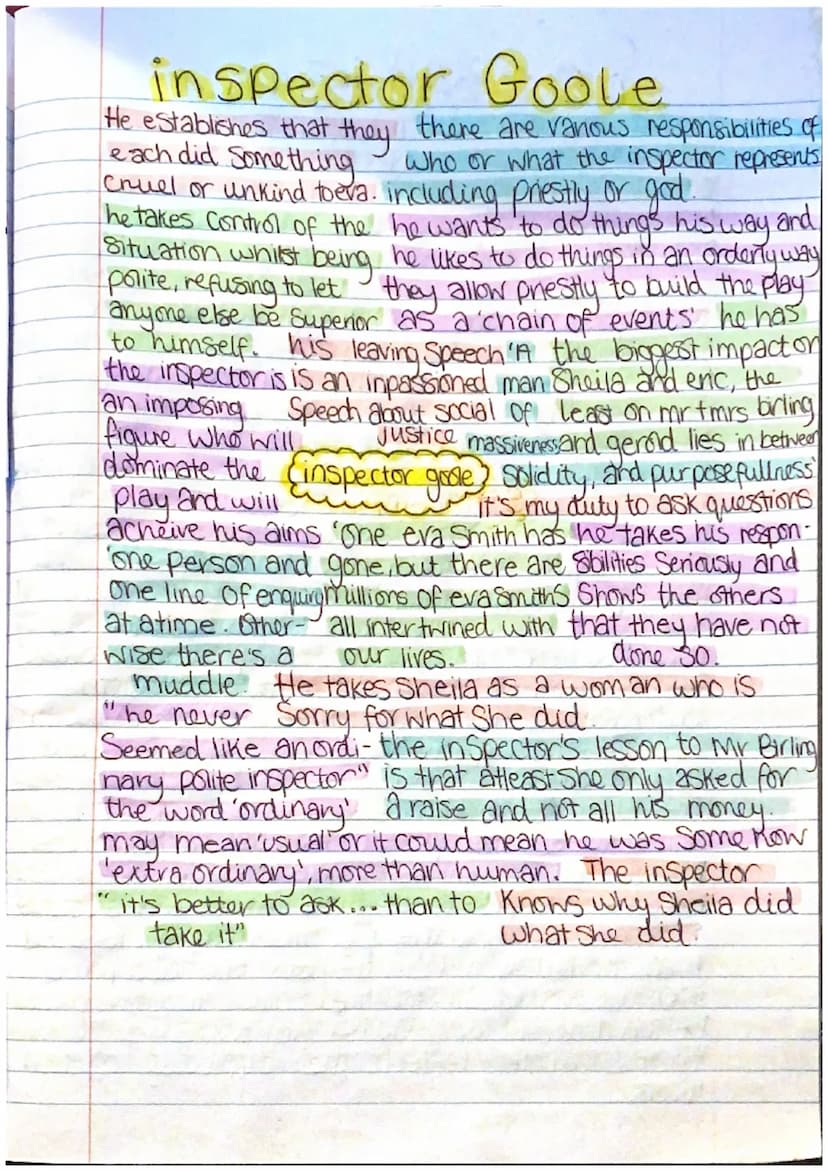 inspector Goole
He establishes that they there are various responsibilities of
each did something who or what the inspector represents
cruel or unkind to eva. including priestly or god.
he takes control of the he wants to do things his way and
situation whilst being he likes to do things in an orderly way
polite, refusing to let they allow priestly to build the play
anyone else be superior as a 'chain of events' he has
to himself. his leaving speech 'A the biggest impact on
the inspector is is an inpassioned man Sheila and eric, the
an imposing Speech about social of least on mr + mrs birling
figure who will justice massiveness and gerald lies in between
dominate the inspector goole solidity, and purposefullness'
play and will it's my duty to ask questions
acheive his aims 'one eva smith has he takes his respon-
'one person and gone, but there are sibilities seriously and
one line of enquiry millions of eva smiths shows the others
at a time. Other- all intertwined with that they have not
wise there's a our lives. done so.
muddle. He takes Sheila as a woman who is
"he never sorry for what she did.
Seemed like an ordi- the inspector's lesson to Mr Birling
nary polite inspector" is that atleast she only asked for
the word 'ordinary' a raise and not all his money.
may mean 'usual' or it could mean he was some how
'extra ordinary', more than human. The inspector
"it's better to ask... than to knows why Sheila did
take it" what she did.